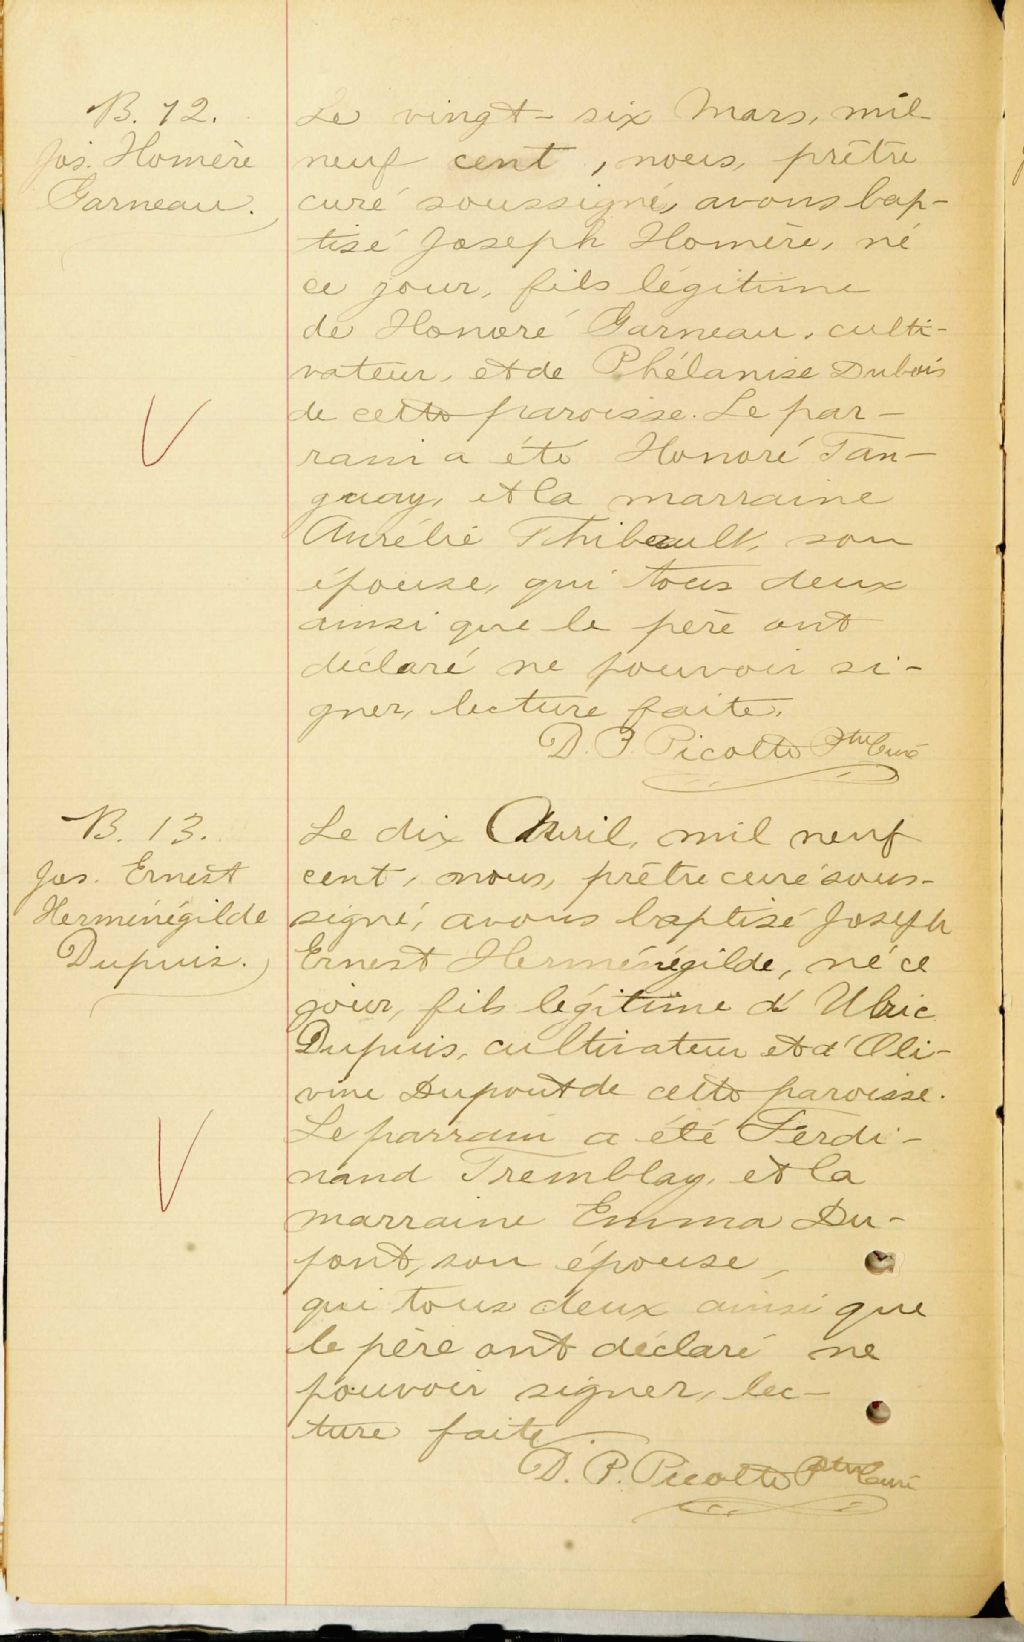 B. 12.
Jos. Homère
Garneau.
Le vingt-six Mars, mil
neuf cent, nous, prêtre
curé soussigné, avons bap-
tisé Joseph Homère, né
ce jour, fils légitime
de Honoré Garneau, culti-
vateur, et de Phélanise Dubois
de cette paroisse. Le par-
rain a été Honoré Tan-
guay, et la marraine
Aurélie Thibault, son
épouse, qui tous deux
ainsi que le père ont
déclaré ne pouvoir si-
gner, lecture faite.
D. P. Picotte Ptre Curé
B. 13.
Jos. Ernest
Herménégilde
Dupuis.
Le dix Avril, mil neuf
cent, nous, prêtre curé sous-
signé, avons baptisé Joseph
Ernest Herménégilde, né ce
jour, fils légitime d'Ulric
Dupuis, cultivateur et d'Oli-
vine Dupont de cette paroisse.
Le parrain a été Ferdi-
nand Tremblay, et la
marraine Emma Du-
pont, son épouse,
qui tous deux ainsi que
le père ont déclaré ne
pouvoir signer, lec-
ture faite.
D. P. Picotte Ptre Curé